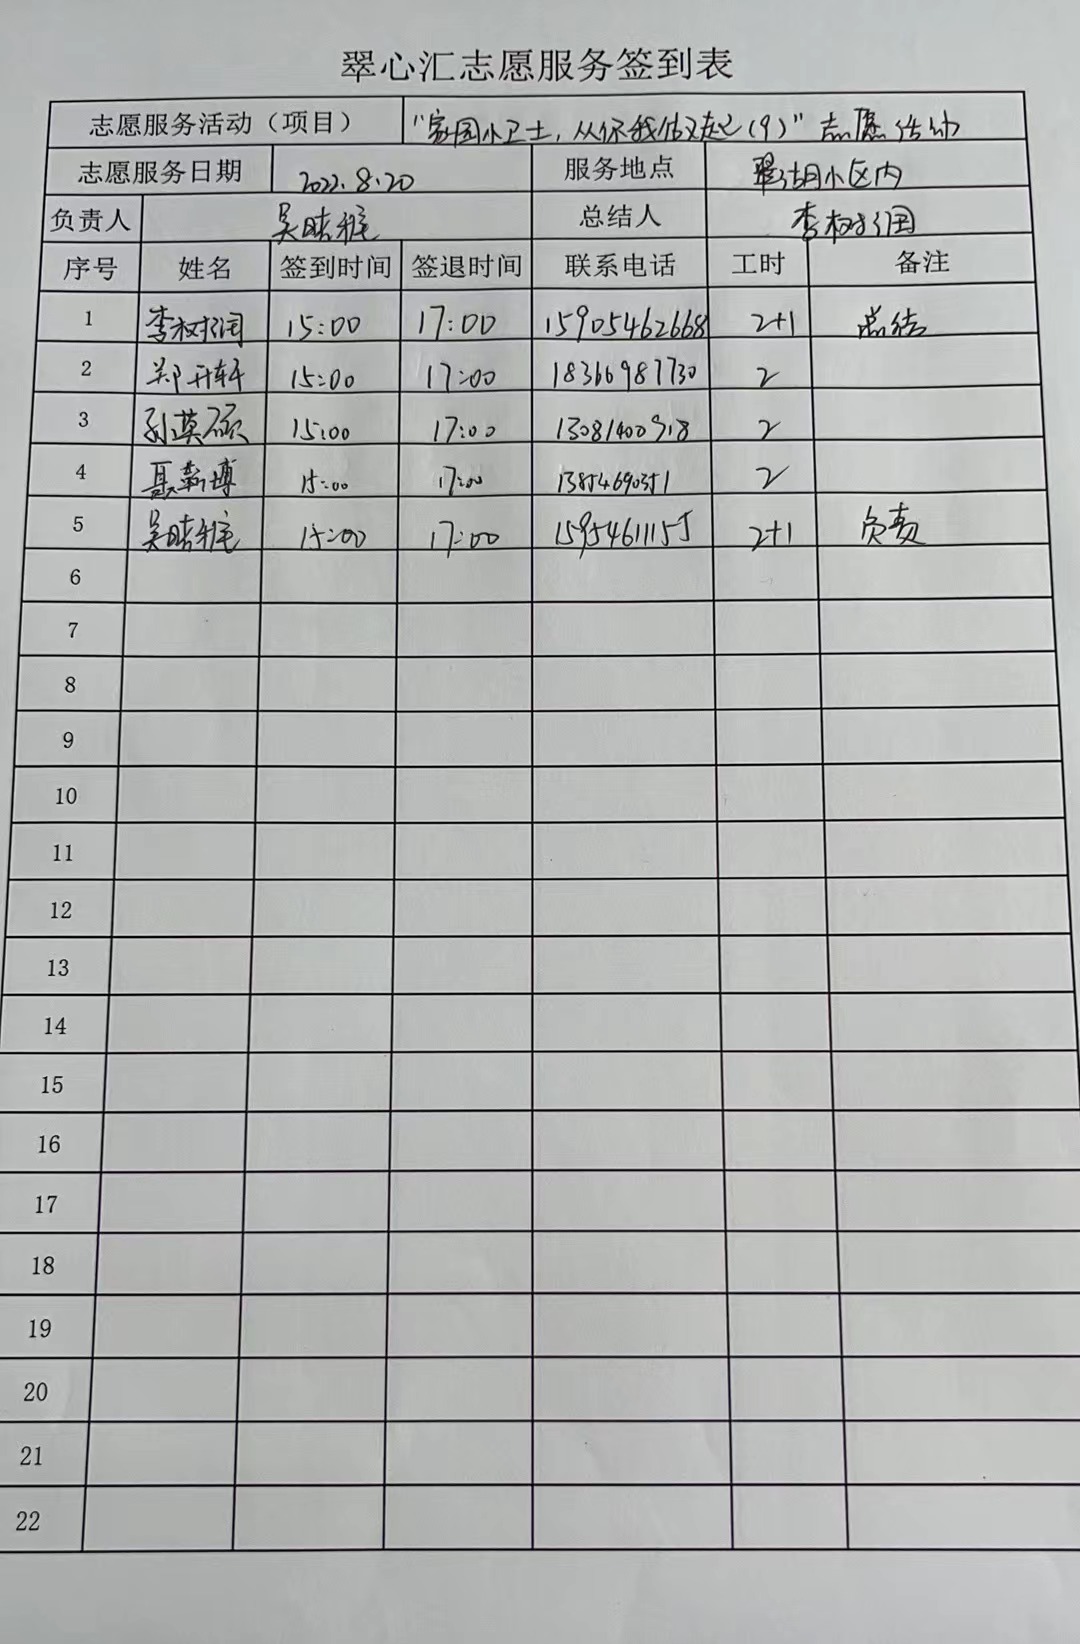 翠心汇志愿服务签到表
志愿服务活动（项目） "家园小卫士，从你我做起（9）"志愿活动
志愿服务日期 2022.8.20 服务地点 翠湖小区内
负责人 吴晴雅 总结人 李树润
序号 姓名 签到时间 签退时间 联系电话 工时 备注
1 李树润 15:00 17:00 15905462668 2+1 总结
2 郑升轩 15:00 17:00 18366987730 2
3 孙英硕 15:00 17:00 13081400918 2
4 聂新博 15:00 17:00 13854690351 2
5 吴晴雅 15:00 17:00 15954611155 2+1 负责
6
7
8
9
10
11
12
13
14
15
16
17
18
19
20
21
22